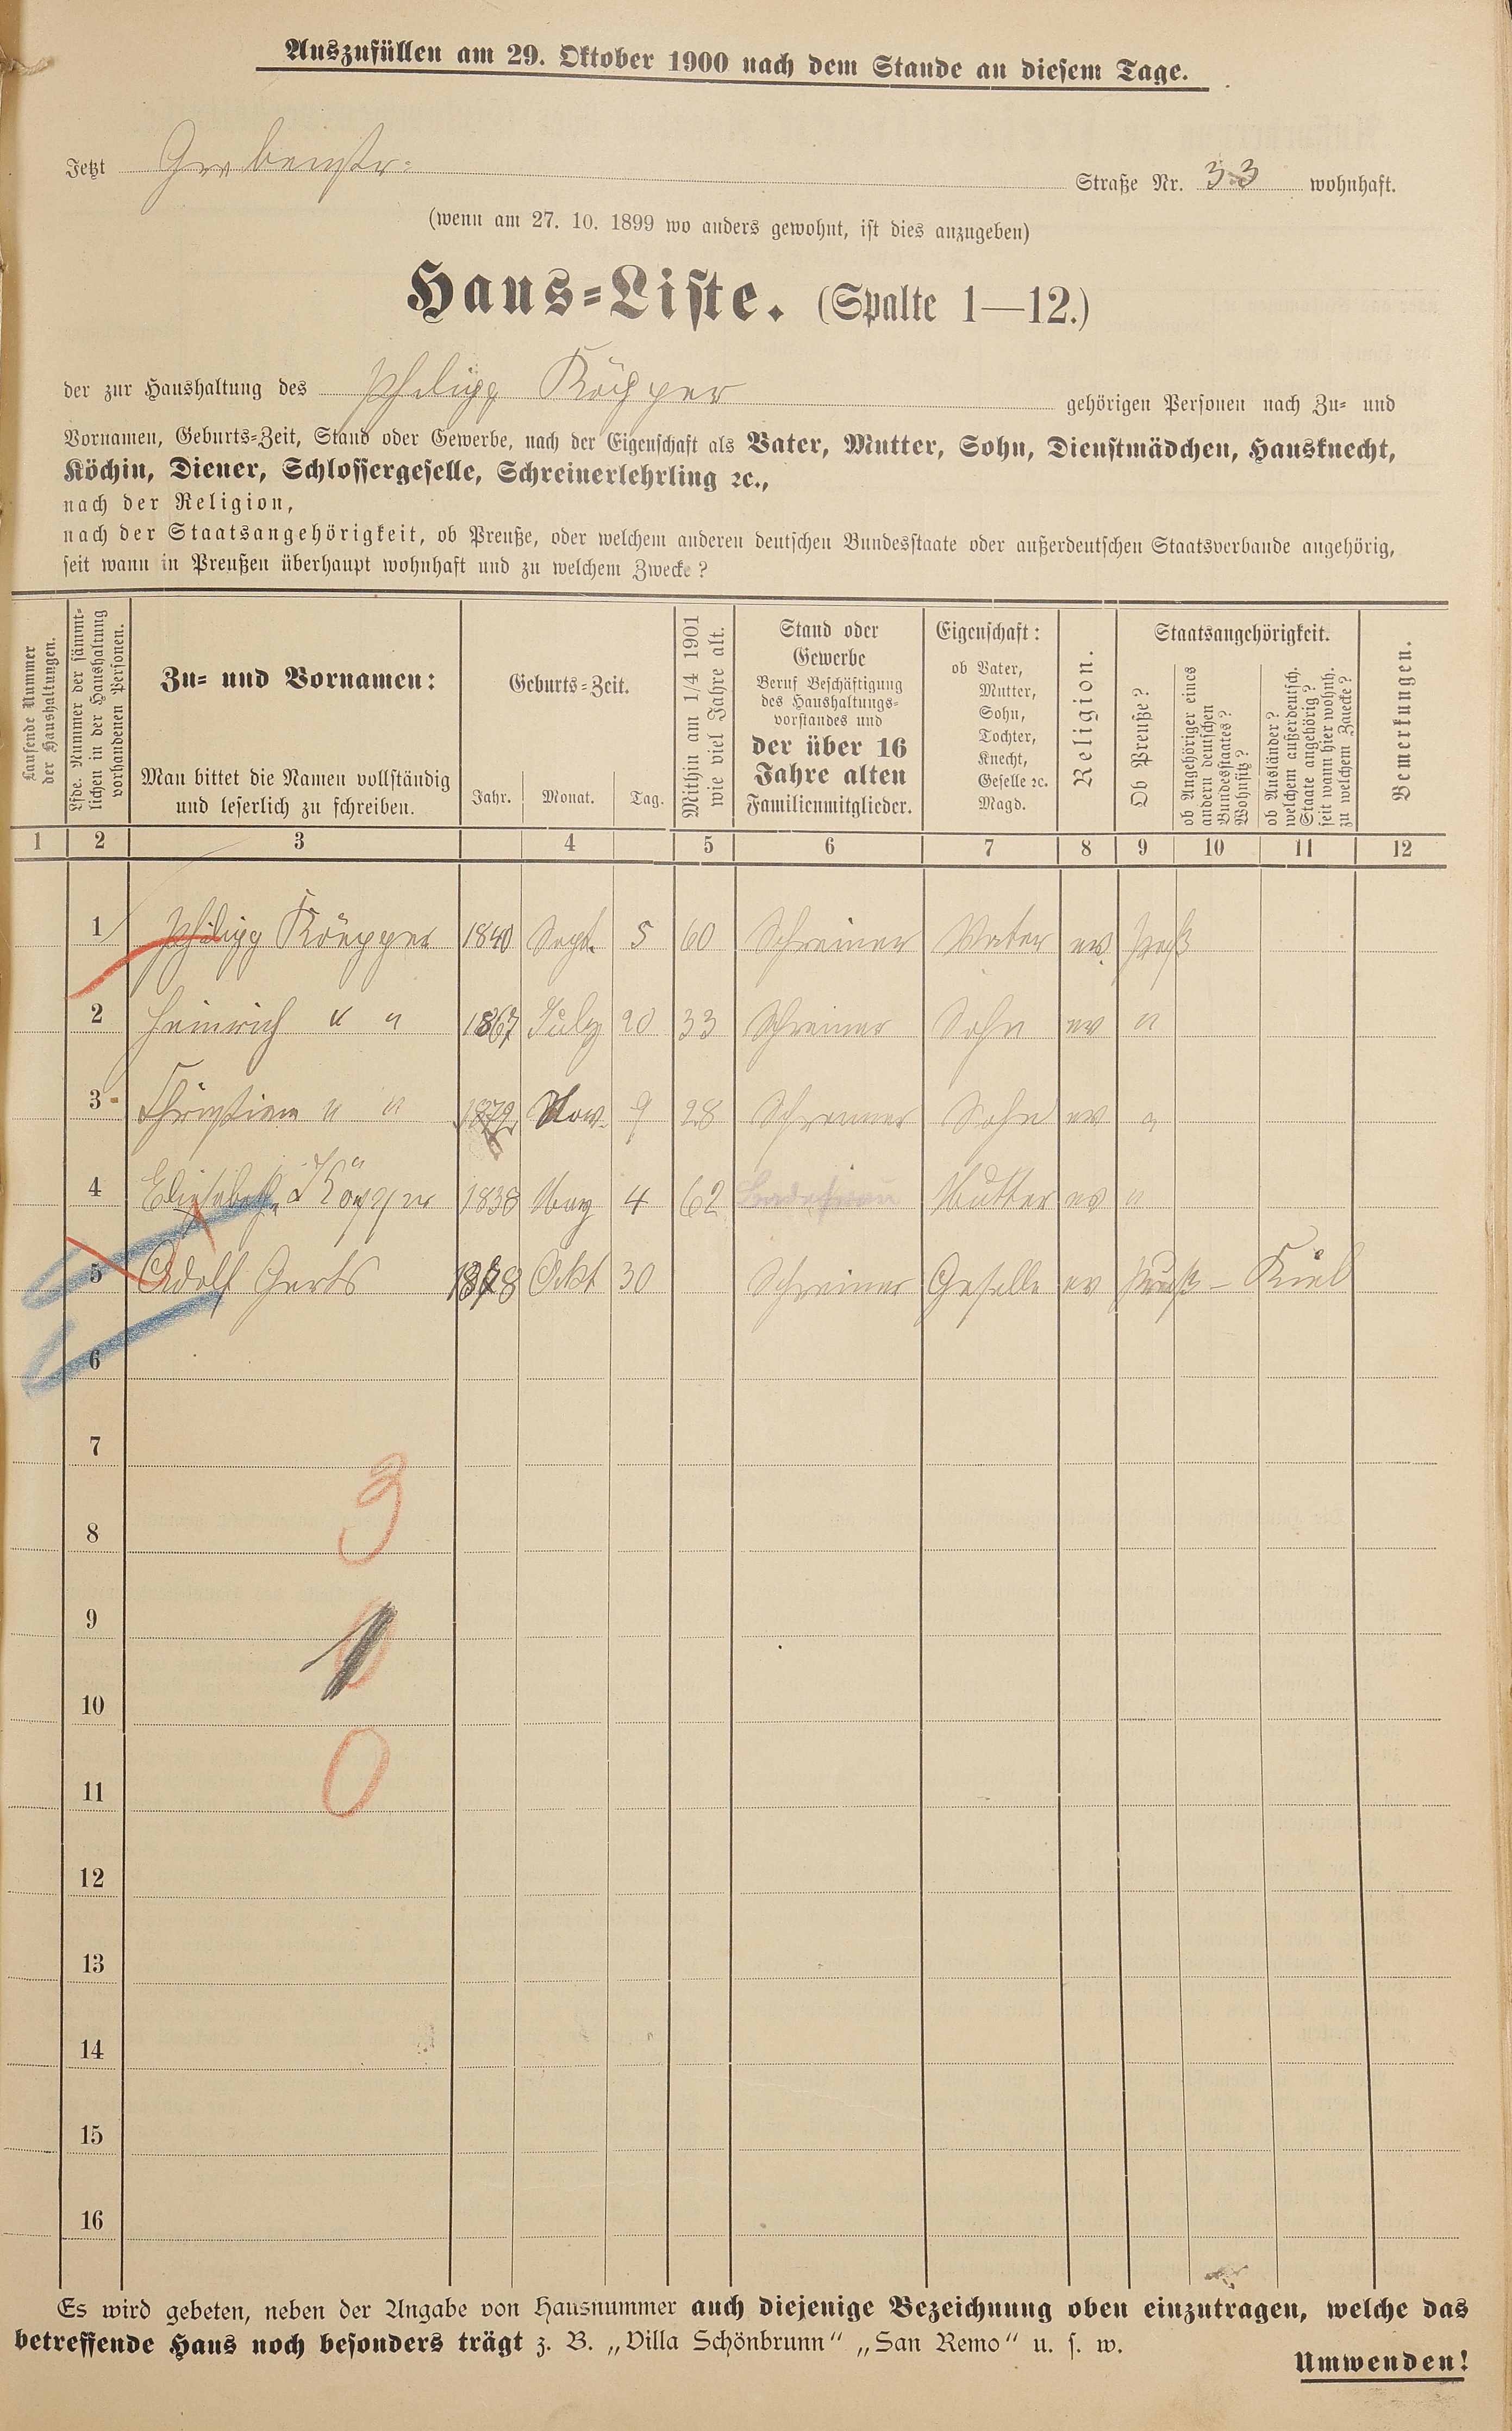 Auszufüllen am 29. Oktober 1900 nach dem Stande an diesem Tage.
Jetzt Grabenstr. Straße Nr. 33 wohnhaft.
(wenn am 27. 10. 1899 wo anders gewohnt, ist dies anzugeben)
Haus-Liste. (Spalte 1—12.)
der zur Haushaltung des Philipp Köpper gehörigen Personen nach Zu- und
Vornamen, Geburts-Zeit, Stand oder Gewerbe, nach der Eigenschaft als Vater, Mutter, Sohn, Dienstmädchen, Hausknecht,
Köchin, Diener, Schlossergeselle, Schreinerlehrling ꝛc.,
nach der Religion,
nach der Staatsangehörigkeit, ob Preuße, oder welchem anderen deutschen Bundesstaate oder außerdeutschen Staatsverbande angehörig,
seit wann in Preußen überhaupt wohnhaft und zu welchem Zwecke?
Laufende Nummer
der Haushaltungen.
Lfde. Nummer der sämmt-
lichen in der Haushaltung
vorhandenen Personen.
Zu- und Vornamen:
Man bittet die Namen vollständig
und leserlich zu schreiben.
Geburts-Zeit.
Jahr. Monat. Tag.
Mithin am 1/4 1901
wie viel Jahre alt.
Stand oder
Gewerbe
Beruf Beschäftigung
des Haushaltungs-
vorstandes und
der über 16
Jahre alten
Familienmitglieder.
Eigenschaft:
ob Vater,
Mutter,
Sohn,
Tochter,
Knecht,
Geselle ꝛc.
Magd.
Religion.
Staatsangehörigkeit.
Ob Preuße?
ob Angehöriger eines
andern deutschen
Bundesstaates?
Wohnsitz?
ob Ausländer?
welchem außerdeutsch.
Staate angehörig?
seit wann hier wohnh.
zu welchem Zwecke?
Bemerkungen.
1 2 3 4 5 6 7 8 9 10 11 12
1 Philipp Köepper 1840 Sept. 5 60 Schreiner Vater ev.
2 Heinrich " " 1867 July 20 33 Schreiner Sohn ev "
3 Christian " " Nov. 9 28 Schreiner Sohn ev "
4 Eliesabeth Köpper 1838 May 4 62 Mutter ev "
5 Adolf Gerts 1878 Okt 30 Schreiner Geselle ev Preuß – Kiel
6
7
3
8
9
10
0
11
12
13
14
15
16
Es wird gebeten, neben der Angabe von Hausnummer auch diejenige Bezeichnung oben einzutragen, welche das
betreffende Haus noch besonders trägt z. B. „Villa Schönbrunn“ „San Remo“ u. s. w.
Umwenden!